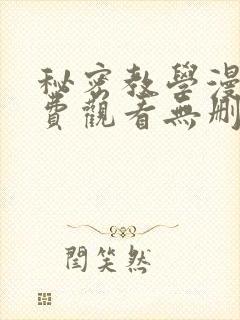 秘密教學漫
費觀看無刪
閆笑然